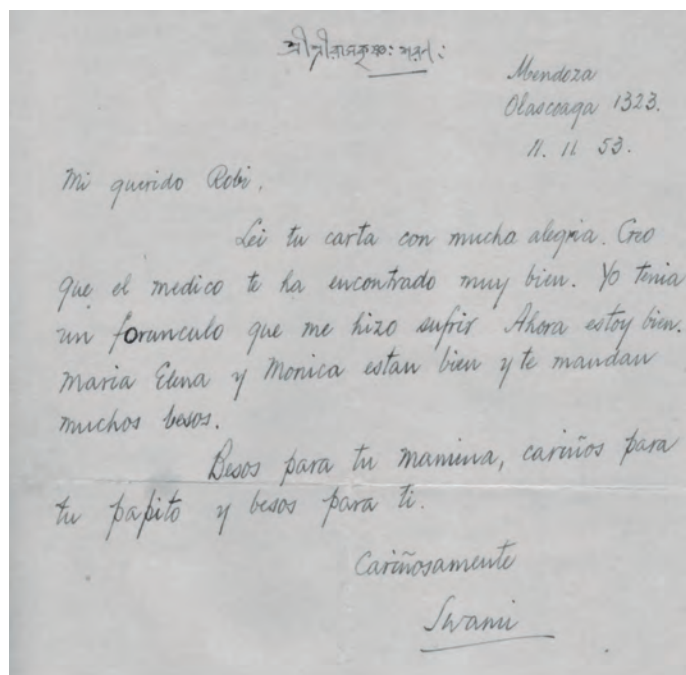 শ্রীশ্রীরামকৃষ্ণঃ শরণং
Mendoza
Olascoaga 1323.
11. 11 53.
Mi querido Robi.
Lei tu carta con mucha alegria. Creo
que el medico te ha encontrado muy bien. Yo tenia
un foranculo que me hizo sufrir Ahora estoy bien.
Maria Elena y Monica estan bien y te mandan
muchos besos.
Besos para tu mamina, cariños para
tu papito y besos para ti.
Cariñosamente
Swami